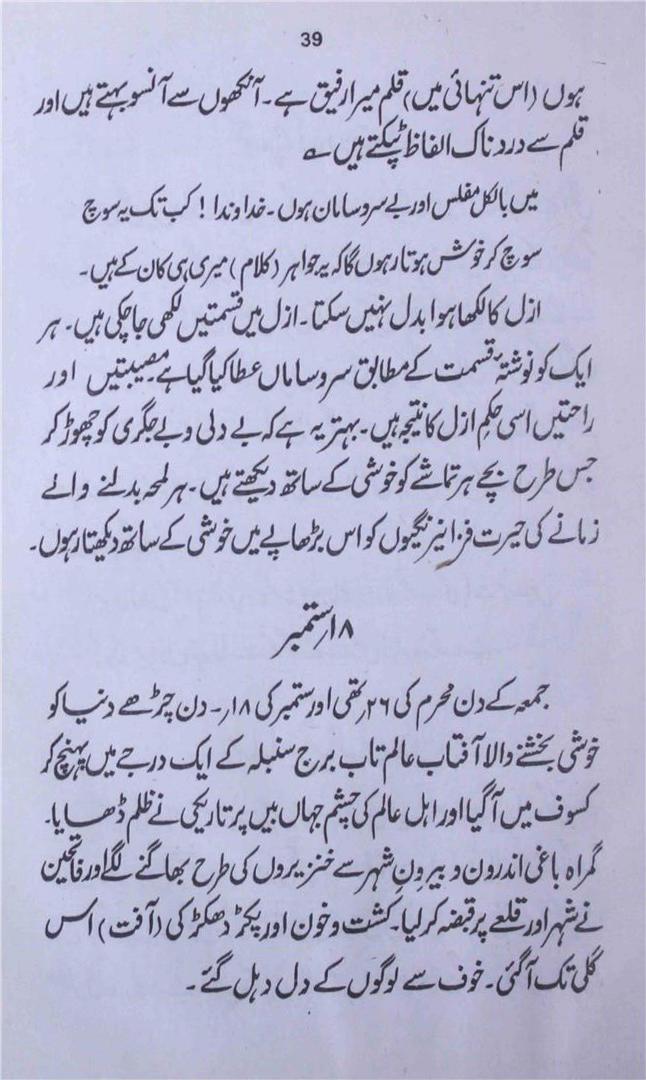 39
ہوں (اس تنہائی میں) قلم میرا رفیق ہے۔ آنکھوں سے آنسو بہتے ہیں اور
قلم سے دردناک الفاظ ٹپکتے ہیں ؎
میں بالکل مفلس اور بے سروسامان ہوں۔ خداوندا! کب تک یہ سوچ
سوچ کر خوش ہوتا رہوں گا کہ یہ جواہر (کلام) میری ہی کان کے ہیں۔
ازل کا لکھا ہوا بدل نہیں سکتا۔ ازل میں قسمتیں لکھی جا چکی ہیں۔ ہر
ایک کو نوشتۂ قسمت کے مطابق سروساماں عطا کیا گیا ہے۔ مصیبتیں اور
راحتیں اسی حکمِ ازل کا نتیجہ ہیں۔ بہتر یہ ہے کہ بے دلی و بے جگری کو چھوڑ کر
جس طرح بچے ہر تماشے کو خوشی کے ساتھ دیکھتے ہیں۔ ہر لمحہ بدلنے والے
زمانے کی حیرت فزا نیرنگیوں کو اس بڑھاپے میں خوشی کے ساتھ دیکھتا رہوں۔
۱۸؍ستمبر
جمعہ کے دن محرم کی ۲۶؍ تھی اور ستمبر کی ۱۸؍۔ دن چڑھے دنیا کو
خوشی بخشنے والا آفتاب عالم تاب برج سنبلہ کے ایک درجے میں پہنچ کر
کسوف میں آ گیا اور اہل عالم کی چشم جہاں بیں پر تاریکی نے ظلم ڈھایا۔
گمراہ باغی اندرون و بیرونِ شہر سے خنزیروں کی طرح بھاگنے لگے اور فاتحین
نے شہر اور قلعے پر قبضہ کر لیا۔ کشت و خون اور پکڑ دھکڑ کی (آفت) اس
گلی تک آ گئی۔ خوف سے لوگوں کے دل دہل گئے۔